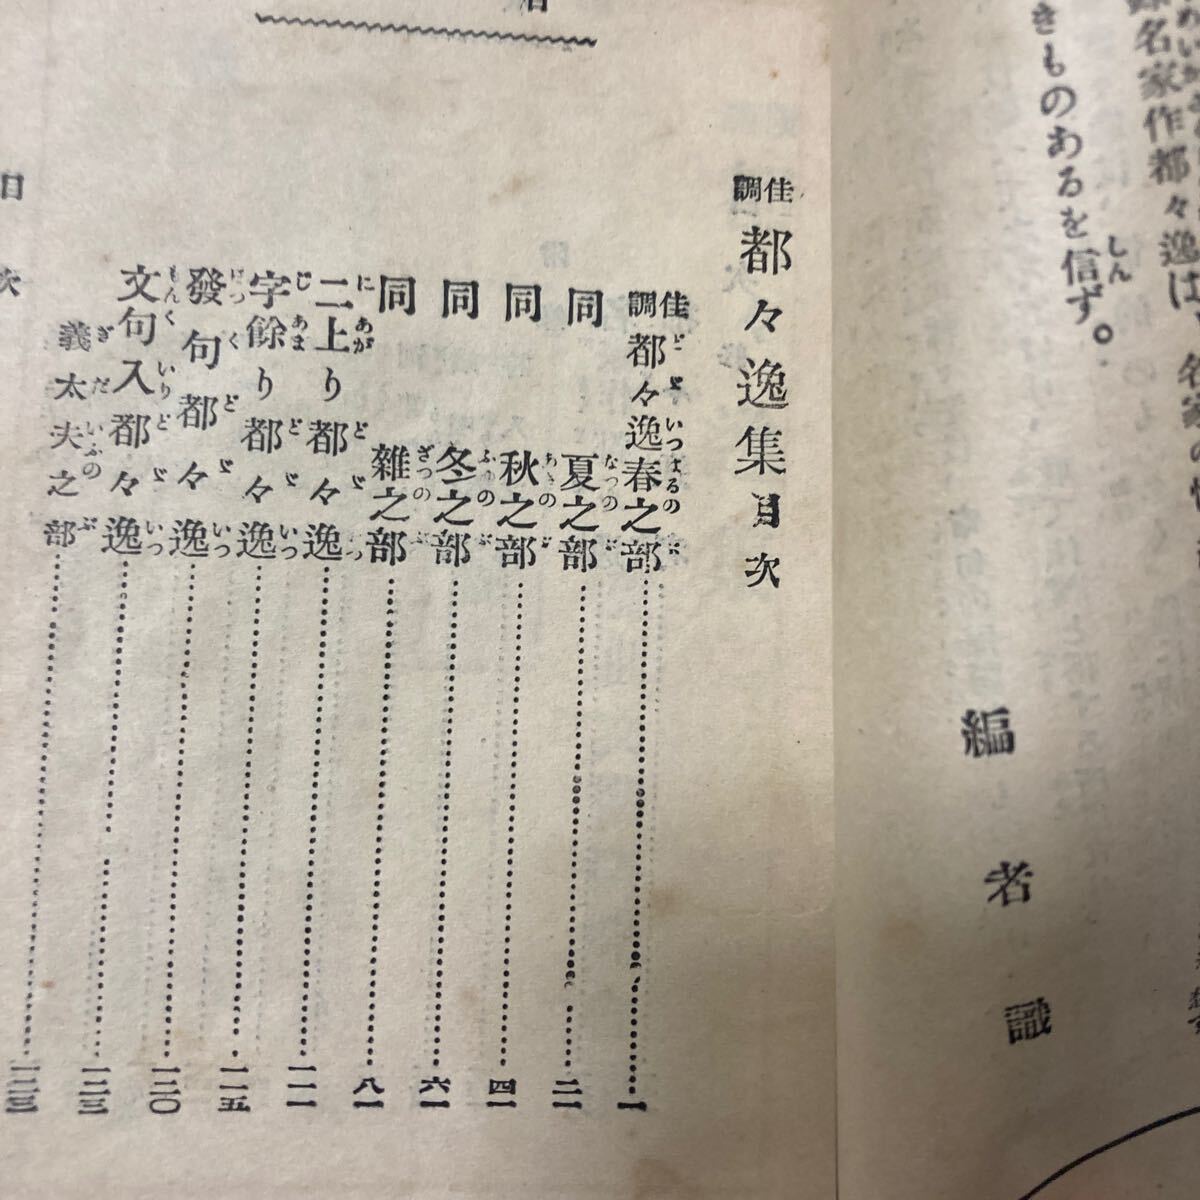 名家作都々逸は、名家の
きものあるを信ず。
編者識
佳調 都々逸集目次
佳調都々逸春之部……一
同 夏之部……二一
同 秋之部……四一
同 冬之部……六一
同 雜之部……八一
二上り都々逸……一一一
字餘り都々逸……一一五
發句都々逸……一二〇
文句入都々逸……一二三
義太夫之部……一二三
目次